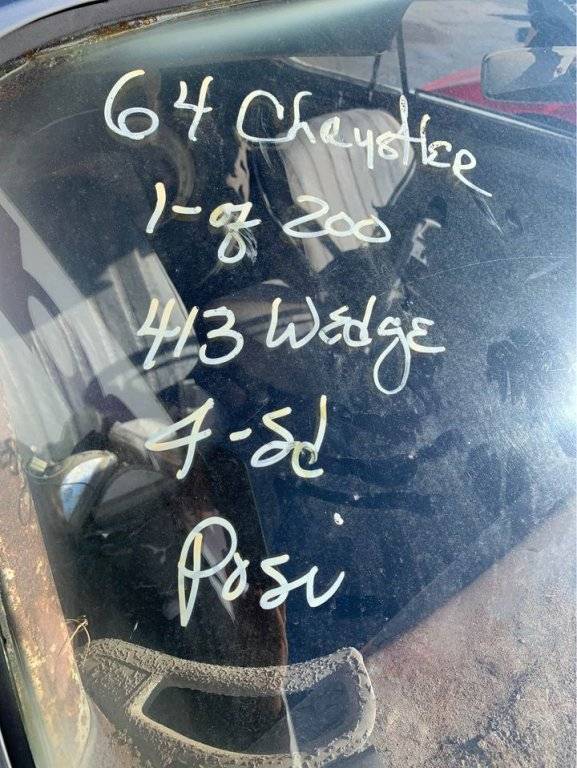 64 Chrysller
1-of 200
413 Wedge
4-Sd
Posi